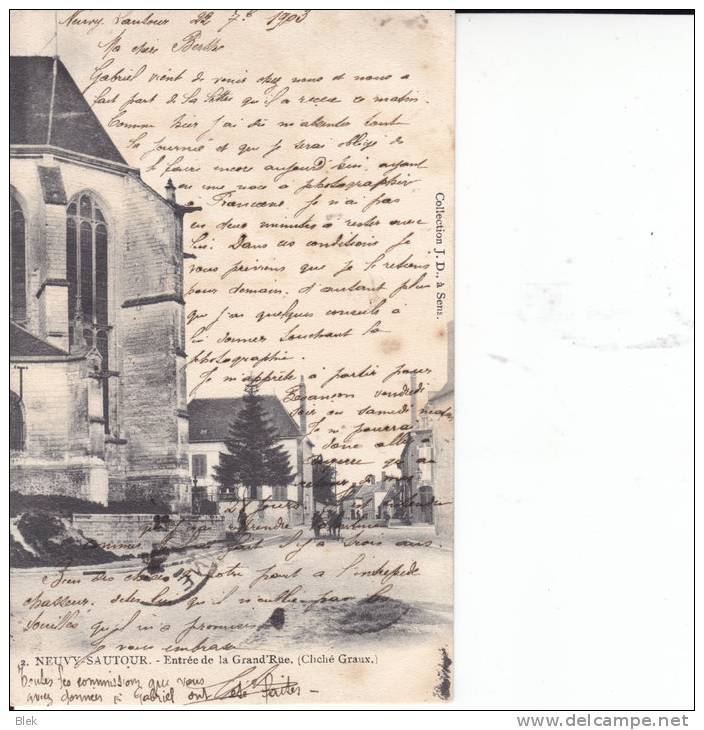 Neuvy Sautour 22 7bre 1903
Ma chère Berthe
Gabriel vient de venir chez nous et nous a
fait part de la lettre qu'il a reçue ce matin.
Comme hier j'ai dû m'absenter tout
la journée et que je serai obligé de
faire encore aujourd'hui, ayant
une noce à photographier
à Je n'ai pas
deux minutes à rester avec
lui. Dans ces conditions je
vous préviens que je le retiens
pour demain. d'autant plus
que j'ai quelques conseils à
lui donner touchant la
photographie.
Je m'apprête à partir pour
Besançon vendredi
soir ou samedi matin
Je ne pourrai
donc
retour,
comme fait il y a trois ans
Bien des choses de notre part à l'intrépide
chasseur. dites lui qu'il n'oublie pas les
qu'il m'a promises
Je vous embrasse
Collection J. D., à Sens.
2. NEUVY-SAUTOUR. - Entrée de la Grand'Rue. (Cliché Graux.)
Toutes les commission que vous
aviez donner à Gabriel ont été faites -
Blek